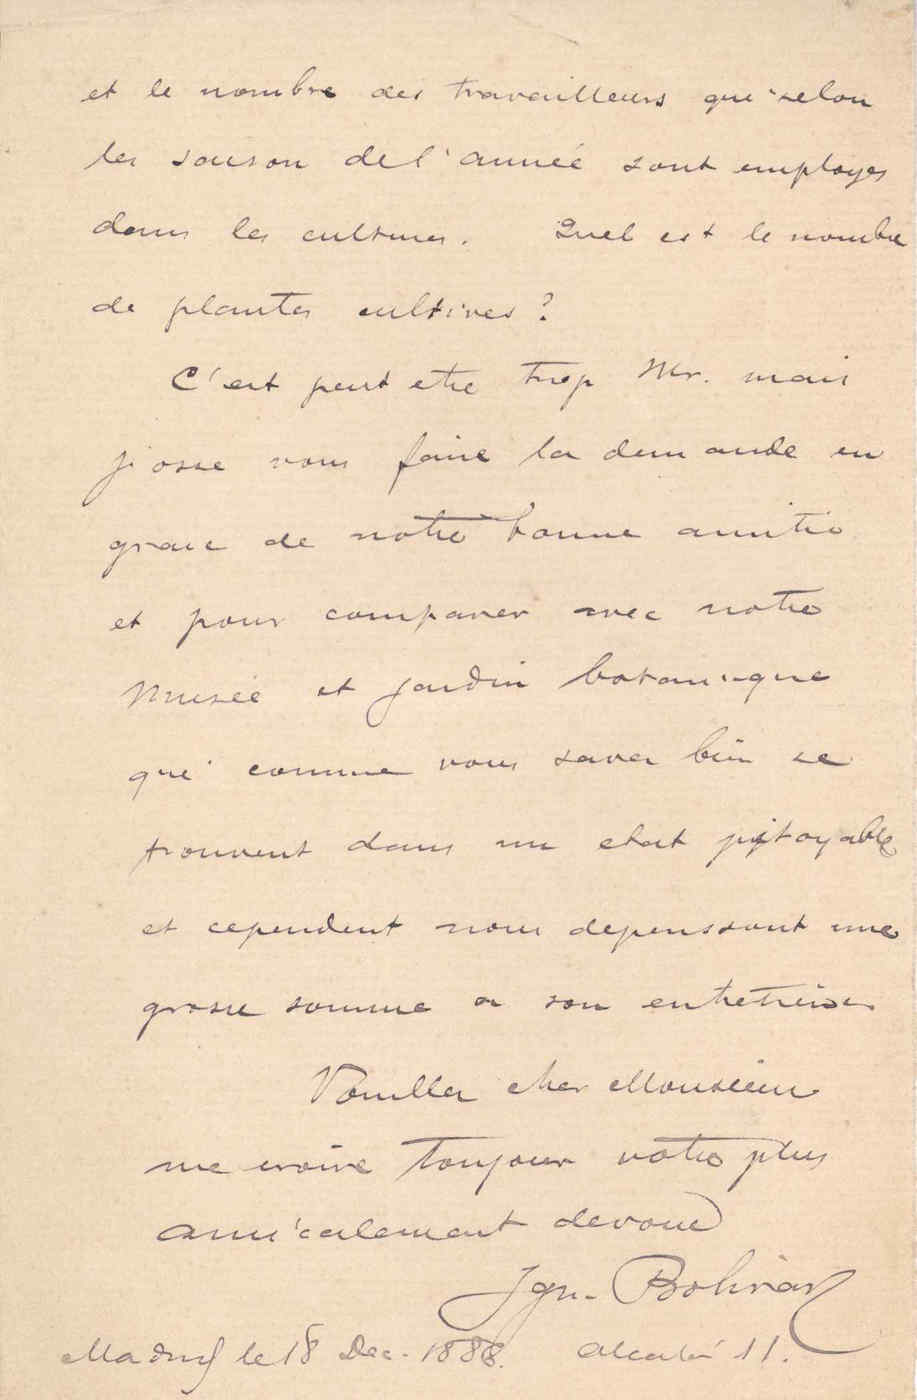 et le nombre des travailleurs que selon
les saison de l'année sont employes
dans les cultures. Quel est le nombre
de plantes cultives?
C'est peut etre trop Mr. mais
j'osse vous faire la demande en
grace de notre bonne amitié
et pour comparer avec notre
Musée et jardin botanique
que comme vous savez bien se
trouvent dans un etat pitoyable
et cependent nous depenssont une
grosse somme a son entretien
Veuillez cher Monsieur
me croire toujour votre plus
amicalement devoué
Ign. Bolivar
Madrid le 18 Dec. 1888. Alcalá 11.